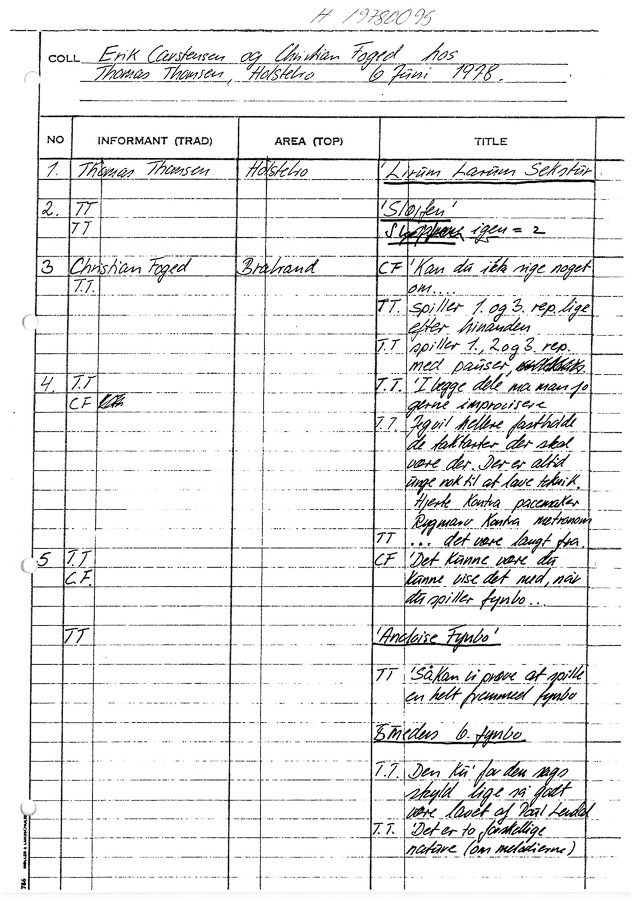 H 19780095
COLL Erik Carstensen og Christian Foged hos
Thomas Thomsen, Holstebro 6 Juni 1978.
NO INFORMANT (TRAD) AREA (TOP) TITLE
1. Thomas Thomsen Holstebro 'Lirum Larum Sekstur
2. TT 'Sløjfen'
TT igen = 2
3 Christian Foged Brabrand CF 'Kan du ikke sige noget
T.T. om....
TT. spiller 1. og 3. rep. lige
efter hinanden
T.T spiller 1., 2 og 3. rep.
med pauser,
4. T.T T.T. 'I begge dele må man jo
CF gerne improvisere
T.T. Jeg vil hellere fastholde
de taktarter der skal
være der. Der er altid
unge nok til at lave teknik.
Hjerte kontra pacemaker
Rygmarv kontra metronom
TT ... det være langt fra.
5 T.T CF 'Det kunne være du
C.F. kunne vise det med, når
du spiller fynbo...
TT 'Andoise Fynbo'
TT 'Så kan vi prøve at spille
en helt fremmed fynbo
Smedens 6. fynbo
T.T. Den ku' for den sags
skyld lige så godt
være lavet af Poul Lendal
T.T. 'Det er to forskellige
nature (om melodierne)
766 MØLLER & LANDSCHULTZ